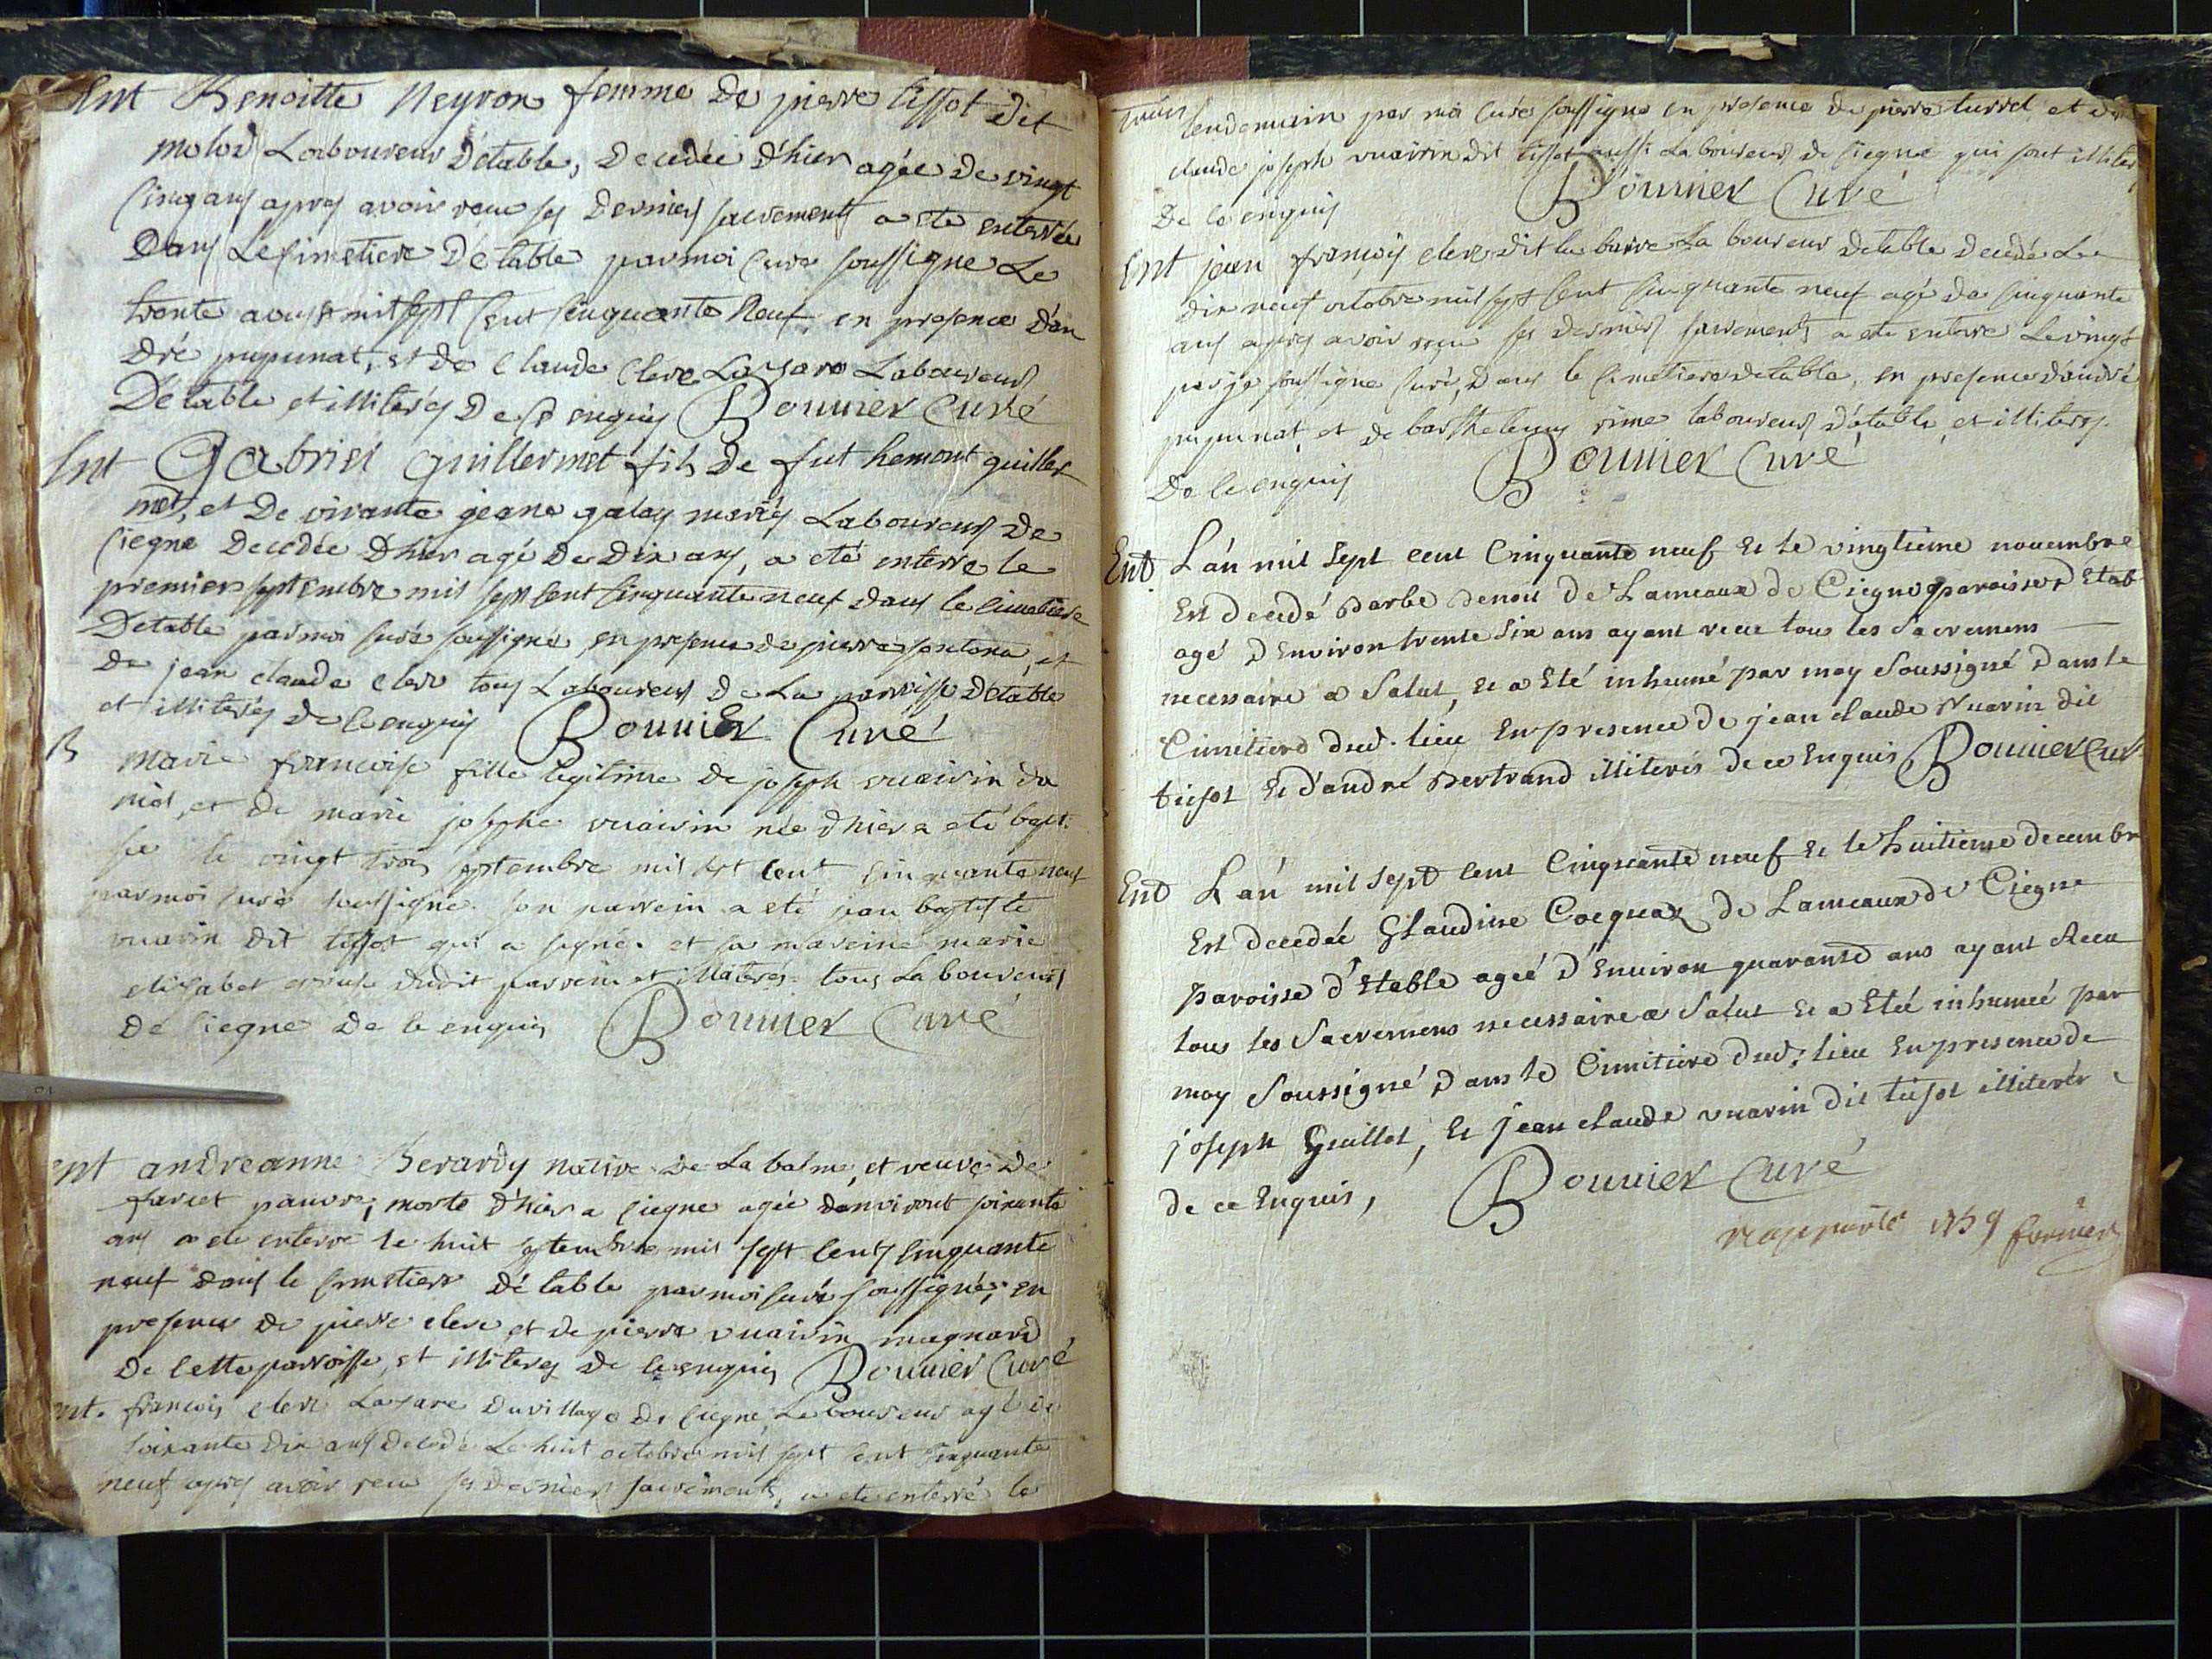 Ent Benoitte Neyron femme De pierre tissot Dit
molod Laboureur D'étable, Decedée D'hier agée De vingt
Cinq ans apres avoir recu ses Derniers sacrements a ete enterrée
Dans Le cimetiere D'étable par moi Curé soussigné Le
trente aoust mil sept Cent Cinquante Neuf, en presence D'an
dré pupunat, et De Claude Clerc Lazare Laboureurs
D'étable et illiterés De ce enquis Bouuier Curé
Ent Gabriel Guillermet fils De fut hemont guiller
met, et De vivante jeane galay mariés Laboureurs De
Ciegne Decedée D'hier agé De Dix ans, a eté enterré le
premier septembre mil sept Cent Cinquante neuf dans le cimetiere
D'etable par moi Curé soussigné en presence de pierre fontana, et
De jean claude clerc tous Laboureurs De La parroisse D'étable
et illiterés de ce enquis Bouuier Curé
B marie francoise fille legitime De joseph vuairin da
niel, et de marie josephe vuairin née d'hier a eté bapt.
sée le vingt trois septembre mil sept Cent Cinquante neuf
par moi Curé soussigné. son parrein a eté jean baptiste
vuarin dit tissot qui a signé. et sa mareine marie
elisabet epouse dudit parrein et illiterés. tous Laboureurs
De Ciegne De ce enquis Bouuier Curé
ent andreanne Berardy native De La balme, et veuve De
farcet pauvre, morte d'hier a Ciegne agée d'environt soixante
ans a ete enterré le huit septembre mil sept Cents Cinquante
neuf dans le cimetiere D'étable par moi Curé soussigné, en
presence De pierre clerc et de pierre vuairin magnard
De Cette parroisse, et illiterés De ce enquis Bouuier Curé
ent. francois clerc Lazare du village De Ciegne, Laboureur agé de
soixante Dix ans decedé Le huit octobre mil sept cent Cinquante
neuf apres avoir recu ses derniers sacrements, a ete enterré le
lendemain par moi Curé soussigné en presence de pierre turret et de
claude joseph vuairin dit tissot aussi Laboureurs de Ciegne qui sont illiterés
De ce enquis Bouuier Curé
Ent jean françois clerc dit la Laboureur D'étable Decedé Le
dix neuf octobre mil sept Cent Cinquante neuf agé de Cinquante
ans apres avoir reçu ses Derniers sacrements a ete enterré Le vingt
par je soussigné Curé, Dans le Cimetiere d'etable, en presence d'andré
pupunat, et de barthelemy rime laboureurs D'étable, et illiterés.
De ce enquis Bouuier Curé
Ent L'an mil Sept cent Cinquante neuf et le vingtieme nouembre
Est decedé Barbe Benoit de Lameaux de Ciegne paroisse d'Etab-
agé d'Environ trente Six ans ayant recu tous les Sacremens
necessaire a Salut, et a Eté inhumé par moy Soussigné Dans le
Cimitiere dud. lieu En presence de jean claude vuarin dit
tissot et d'andré Bertrand illiterés de ce Enquis Bouuier Curé
Ent L'an mil Sept Cent Cinquante neuf et le huitieme decembre
Est decedée Glaudine Cocquaz de Lameaux de Ciegne
paroisse d'Etable agée d'Enuiron quarante ans ayant Recu
tous les Sacremens necessaire a Salut et a Eté inhumée par
moy Soussigné Dans le Cimitiere dud: lieu En presence de
joseph Guillot, Et jean claude vuarin dit tissot illiterés
de ce Enquis, Bouuier Curé
rapporté